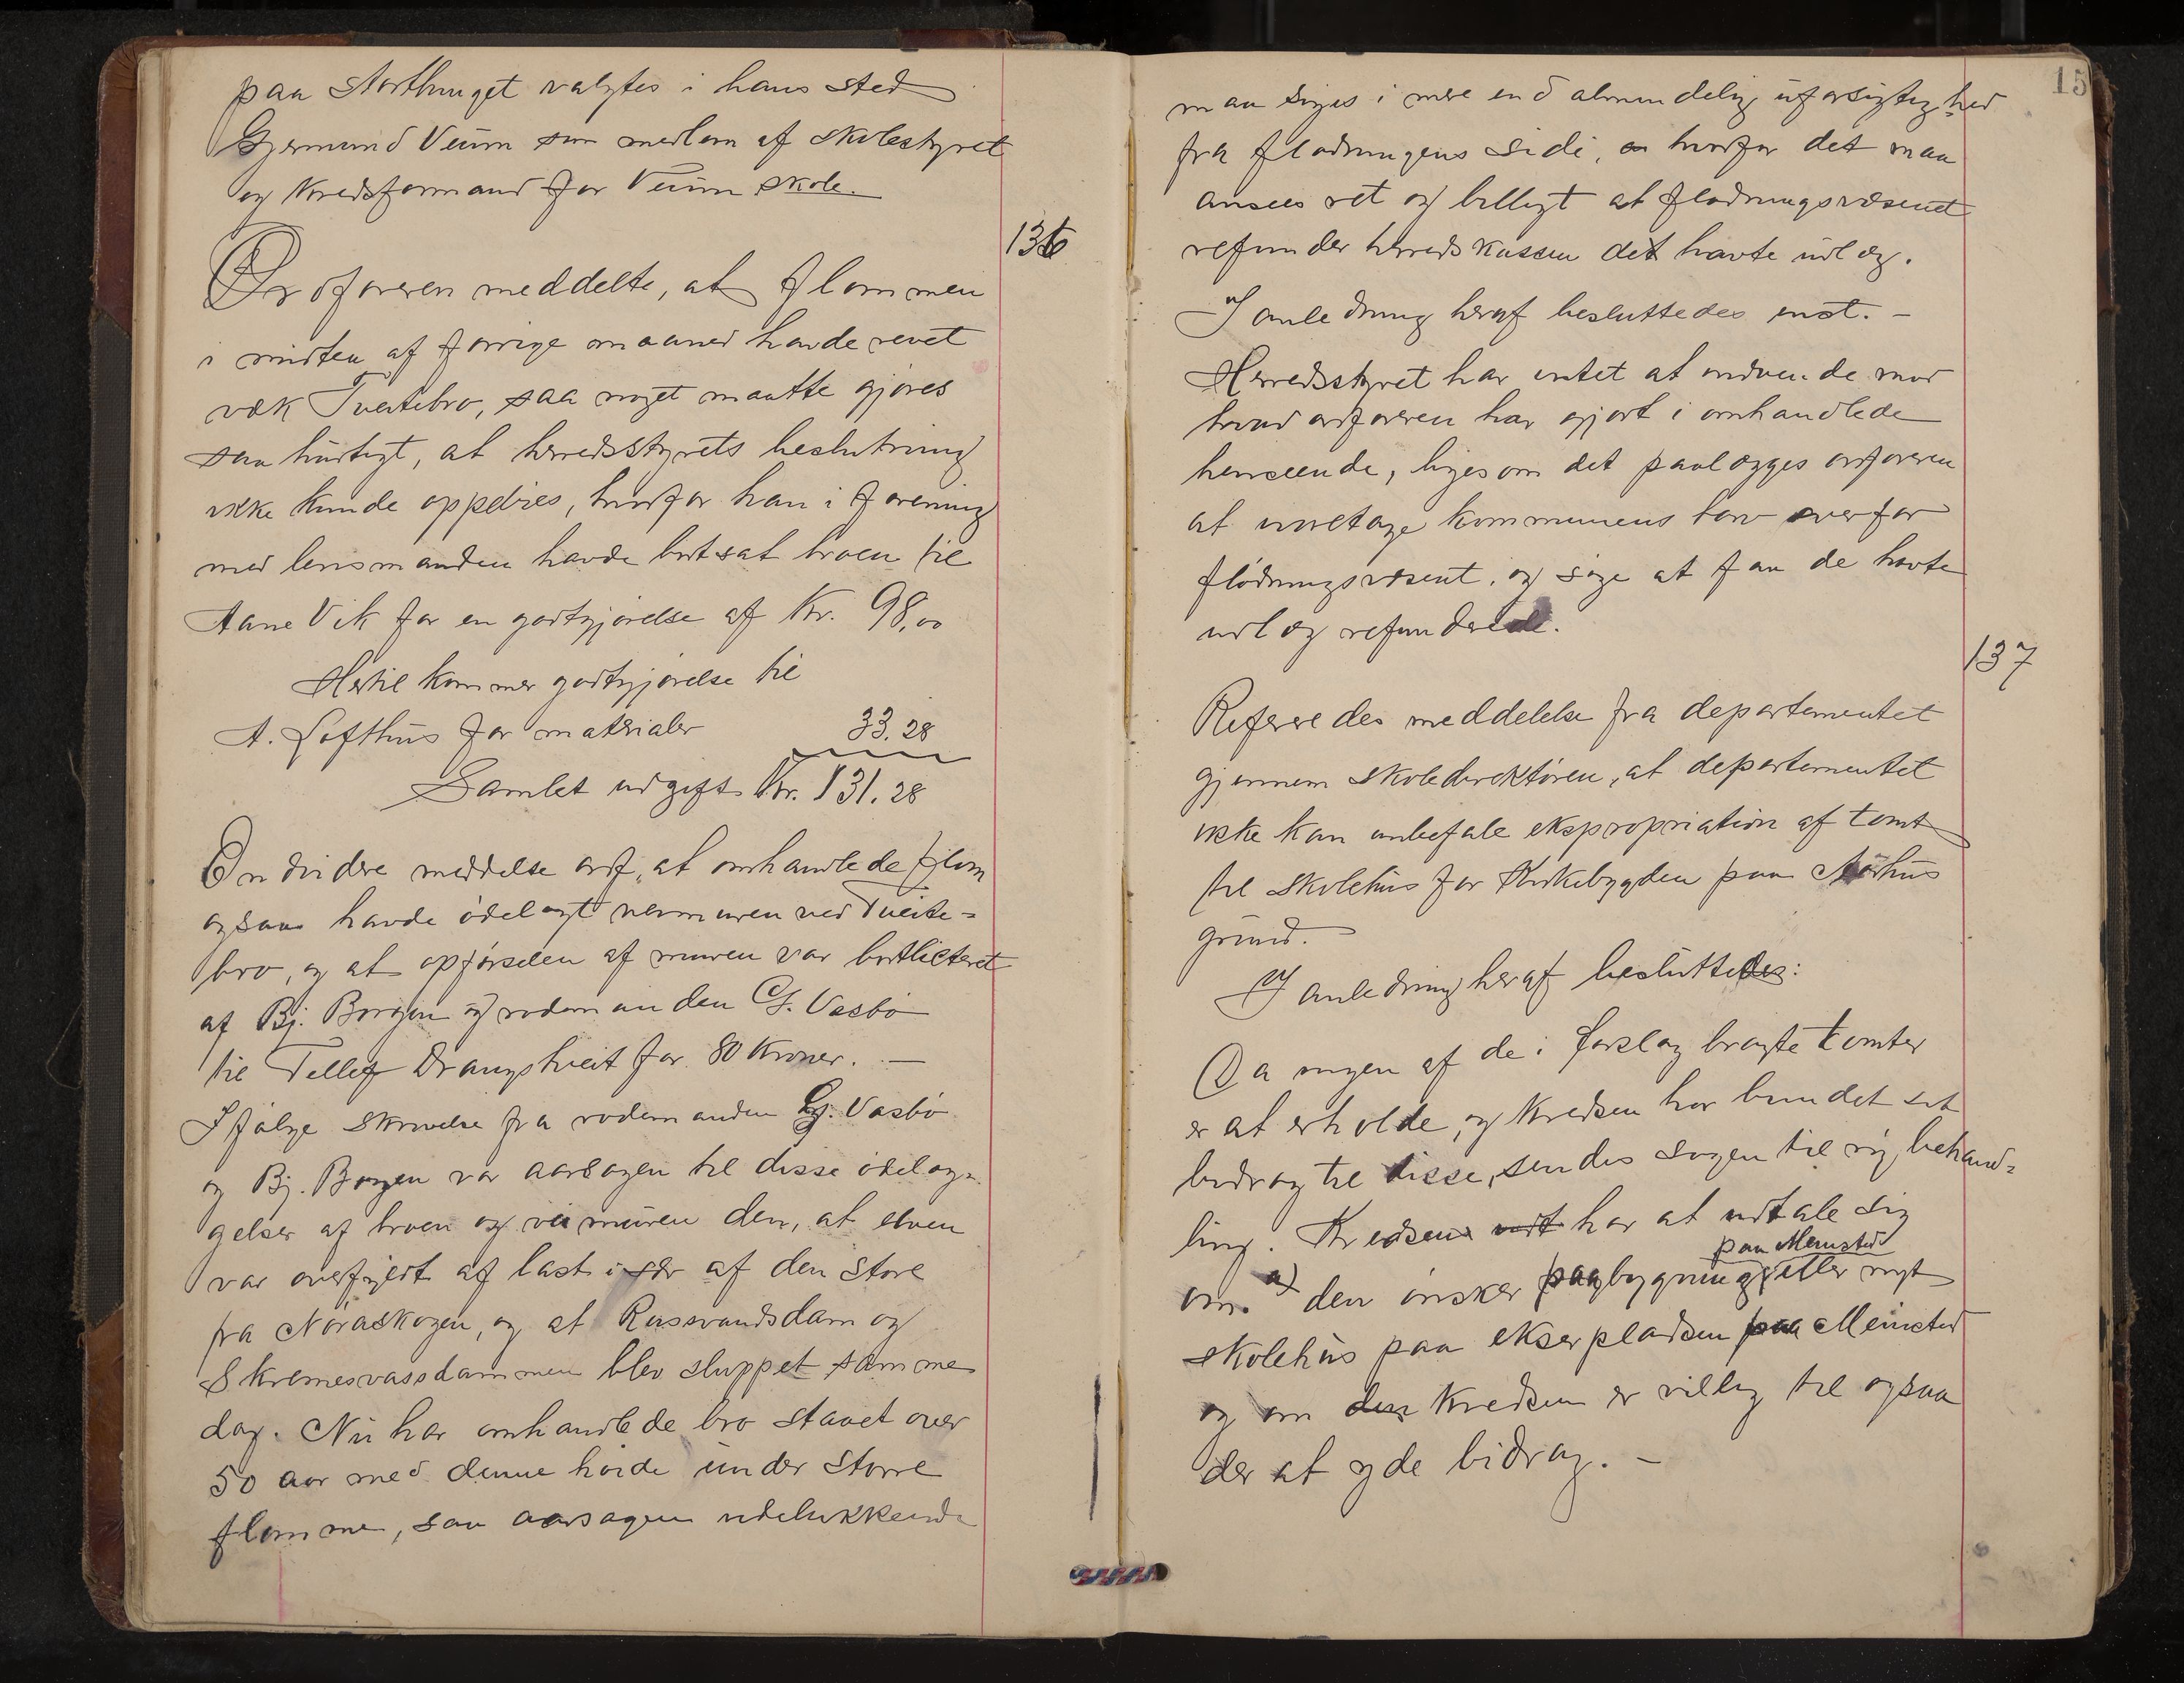 paa Storthinget valgtes i hans sted
Gjermund Veum som medlem af skolestyret
og kredsformand for Veum skole.
136
Ordføreren meddelte, at flommen
i midten af forrige maaned havde revet
væk Tveitebro, saa noget maatte gjøres
saa hurtigt, at herredsstyrets beslutning
ikke kunde oppebies, hvorfor han i forening
med lensmanden havde bortsat broen til
Aane Vik for en godtgjørelse af Kr. 98,00
Hertil kommer godtgjørelse til
A. Lofthus for materialer 33.28
Samlet udgift Kr. 131.28
Endvidere meddelte ordf, at omhandlede flom
ogsaa havde ødelagt veimuren ved Tveite-
bro, og at opførselen af muren var bortliciteret
af Bj. Borgen og rodemanden G. Vasbø
til Tellef Drangstveit for 80 Kroner. —
Ifølge skrivelse fra rodemanden G. Vasbø
og Bj. Borgen var aarsagen til disse ødelæg-
gelser af broen og veimuren den, at elven
var overfyldt af last især af den store
fra Noraskogen, og at Rusvandsdam og
Skremesvassdammen blev sluppet samme
dag. Nu har omhandlede bro staaet over
50 aar med denne høide under større
flomme, saa aarsagen udelukkende
15
maa søges i mere end almindelig uforsigtighed
fra flødningens side, hvorfor det maa
ansees ret og billigt at flødningsvæsenet
refunder herredskassen det havte udlæg.
I anledning heraf besluttedes enst. —
Herredsstyret har intet at indvende mod
hvad ordføreren har gjort i omhandlede
henseende, ligesom det paalægges ordføreren
at varetage kommunens tarv overfor
flødningsvæsent, og søge at faa de havte
udlæg refunderede.
137
Refereredes meddelelse fra departementet
gjennem skoledirektøren, at departementet
ikke kan anbefale ekspropriation af tomt
til skolehus for Kirkebygden paa Moshus
grund.
I anledning heraf besluttedes:
Da ingen af de i forslag bragte tomter
er at erholde, og kredsen har bundet sit
bidrag til disse, sendes sagen til ny behand-
ling. Kredsen har at udtale sig
paa Meinstad
om a) den ønsker paabygning eller nyt
skolehus paa ekserpladsen paa Meinstad
og om den kredsen er villig til ogsaa
der at yde bidrag. —